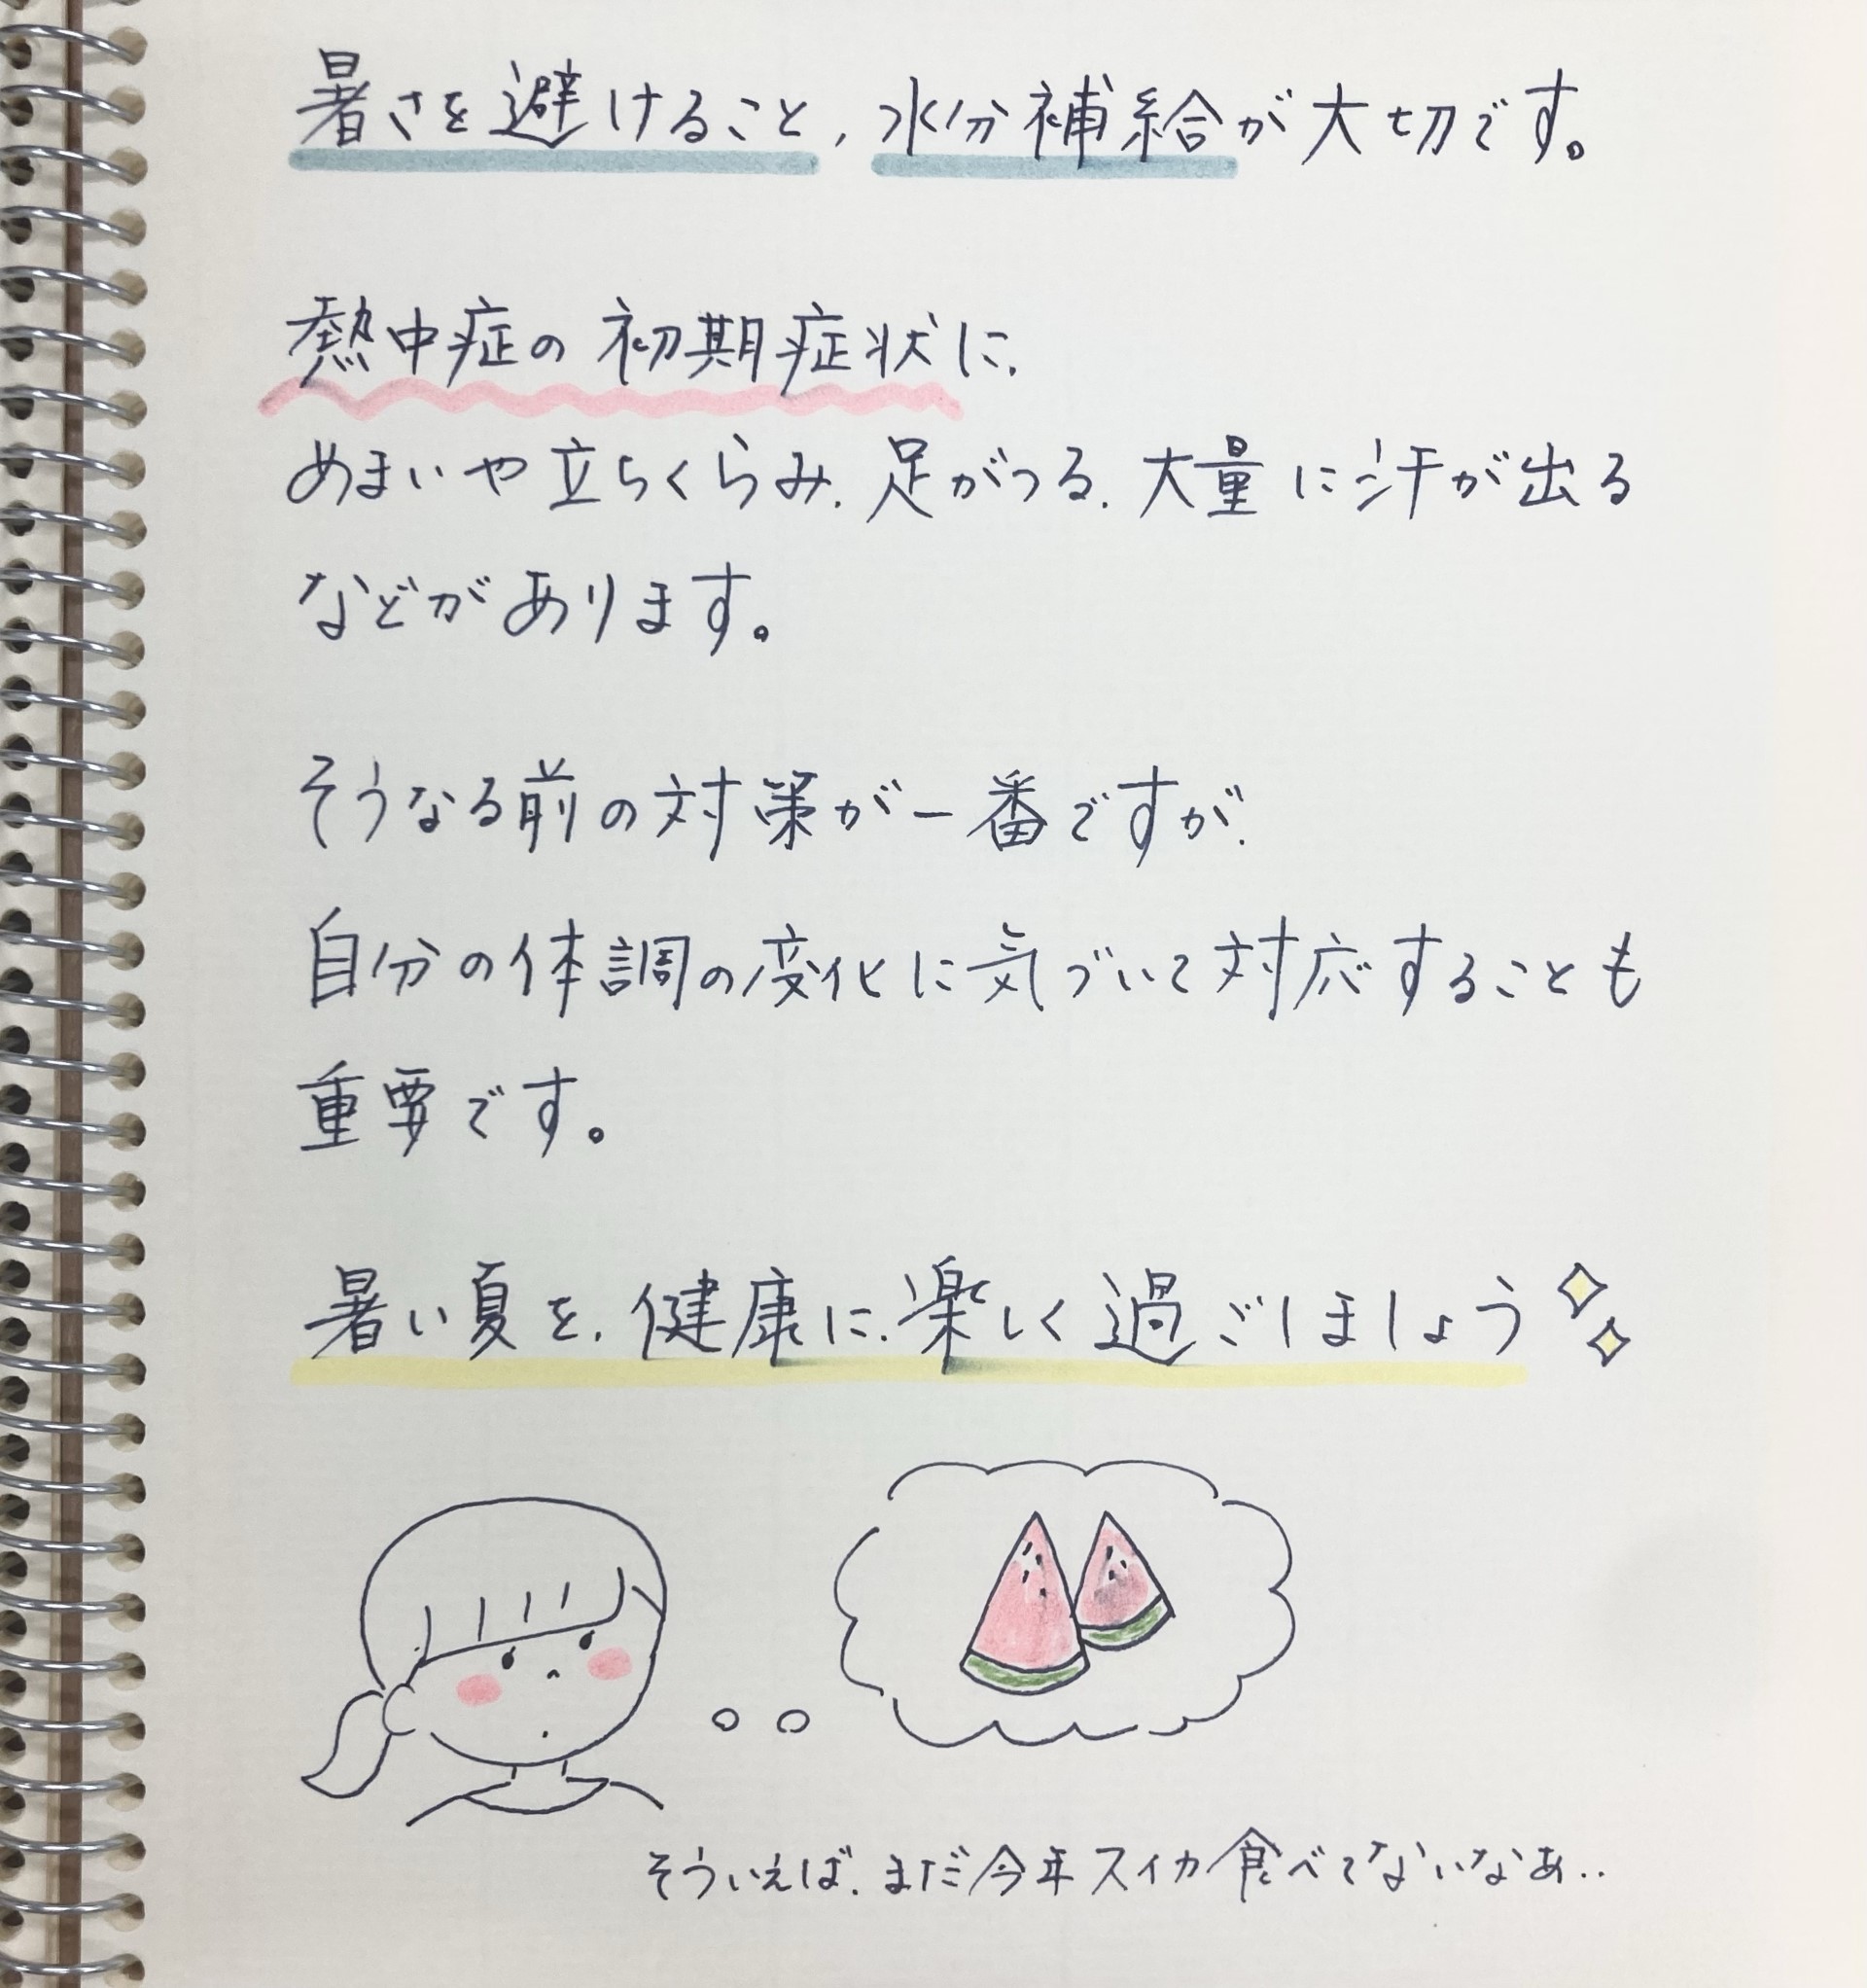 暑さを避けること、水分補給が大切です。
熱中症の初期症状に、
めまいや立ちくらみ、足がつる、大量に汗が出る
などがあります。
そうなる前の対策が一番ですが、
自分の体調の変化に気づいて対応することも
重要です。
暑い夏を、健康に、楽しく過ごしましょう
そういえば、まだ今年スイカ食べてないなぁ..